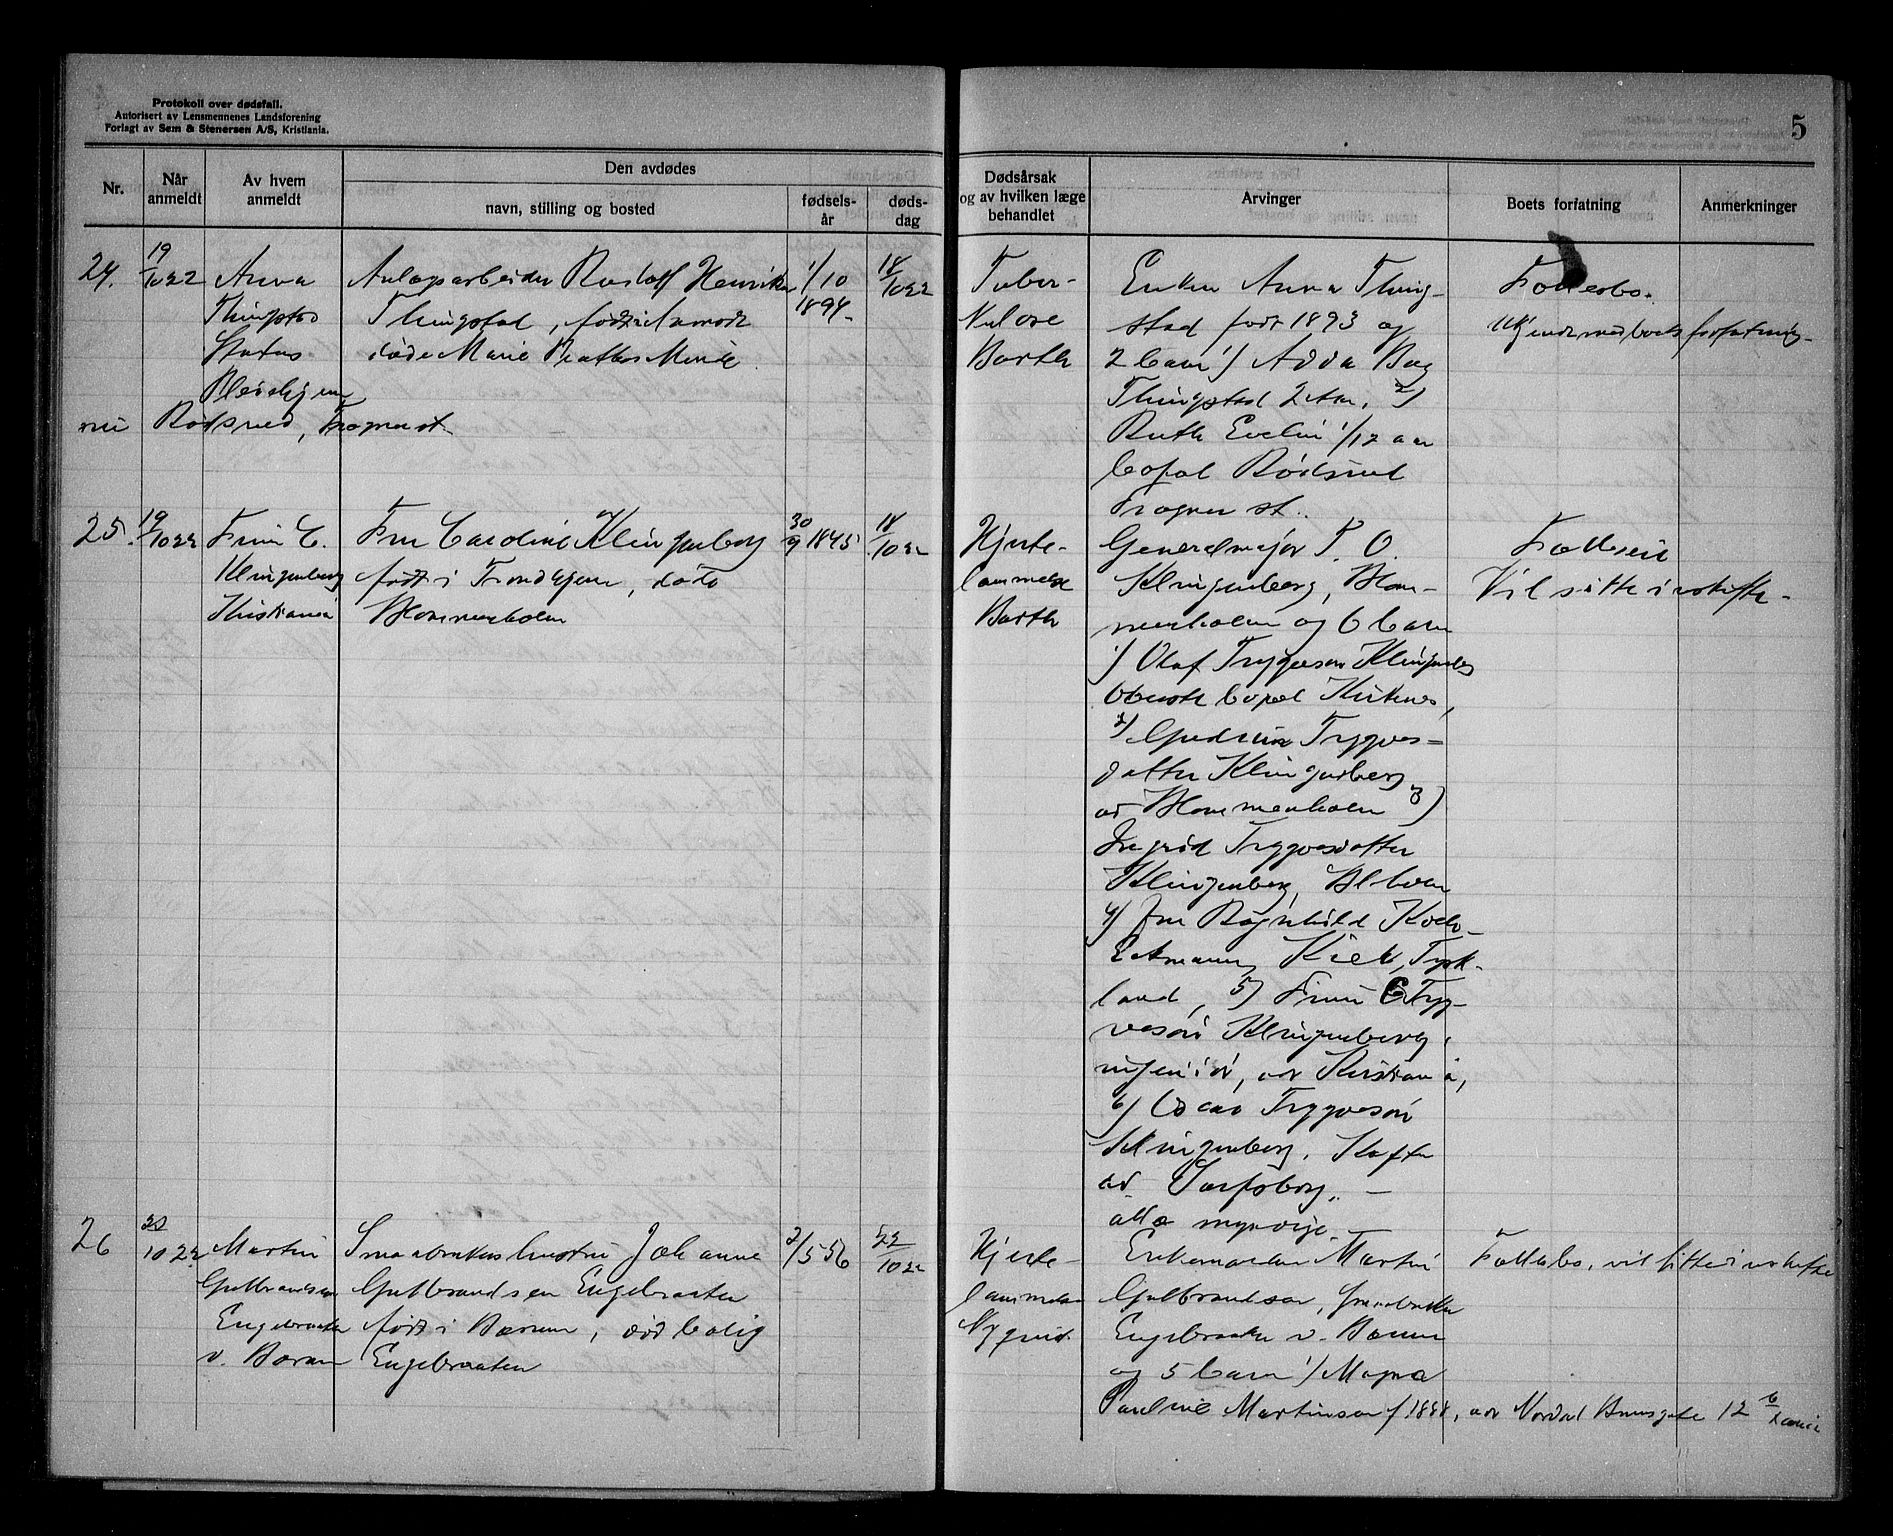 Protokoll over dødsfall.
Autorisert av Lensmennenes Landsforening
Forlagt av Sem & Stenersen A/S, Kristiania.
5
Nr.
Når anmeldt
Av hvem anmeldt
Den avdødes
navn, stilling og bosted
fødsels-år
døds-dag
Dødsårsak og av hvilken læge behandlet
Arvinger
Boets forfatning
Anmerkninger
24.
19/10 22
Anna
Thingstad
Statens
nu Rødsrud, Trogner st.
Anlægsarbeider Henrik
Thingstad, født i
død
1/10
1894
18/10 22
Tuber-
kulose
Barth
Enken Anna Thing-
stad født 1893 og
2 barn 1)
Thingstad 2 aar, 2)
Ruth Evelin 1/12 aar
bopæl Rødsrud
Trogner st.
Fællesbo.
Ukjendt med boets forfatning
25.
19/10 22
Finn C.
Klingenberg
Kristiania
Fru Caroline Klingenberg
født i Trondhjem, død
Blommenholm
30/9 1845
18/10 22
Hjerte-
lammelse
Barth
Generalmajor T. O.
Klingenberg, Blom-
menholm og 6 barn
1) Olaf Trygveson Klingenberg
Oberst bopæl Kirkenes,
2) Gudrun Trygves-
datter Klingenberg
adr Blommenholm 3)
Ingrid Trygvesdatter
Klingenberg,
4) fru Ragnhild Koch-
Kiel, Tysk-
land, 5) Finn C Tryg-
vesøn Klingenberg,
ingeniør, adr Kristiania,
6) Oscar Trygvesøn
Klingenberg,
ad. Sarpsborg. –
alle myndige.
Fælleseie
Vil sitte i uskifte –
26
10 22
Martin
Gulbrandsen
Engebraaten
v. Bærum
Smaabrukerhustru Johanne
Gulbrandsen Engebraaten
født i Bærum, død bolig
Engebraaten
2/5 56
22/10 22
Hjerte-
lammelse
Nyquist
Enkemanden Martin
Gulbrandsen, Smaabruker
Engebraaten v. Bærum
og 5 barn 1) Magna
Pauline Martinsen f. 1888, adr Nordal Brunsgate 12
Fællesbo, vil sitte i uskifte